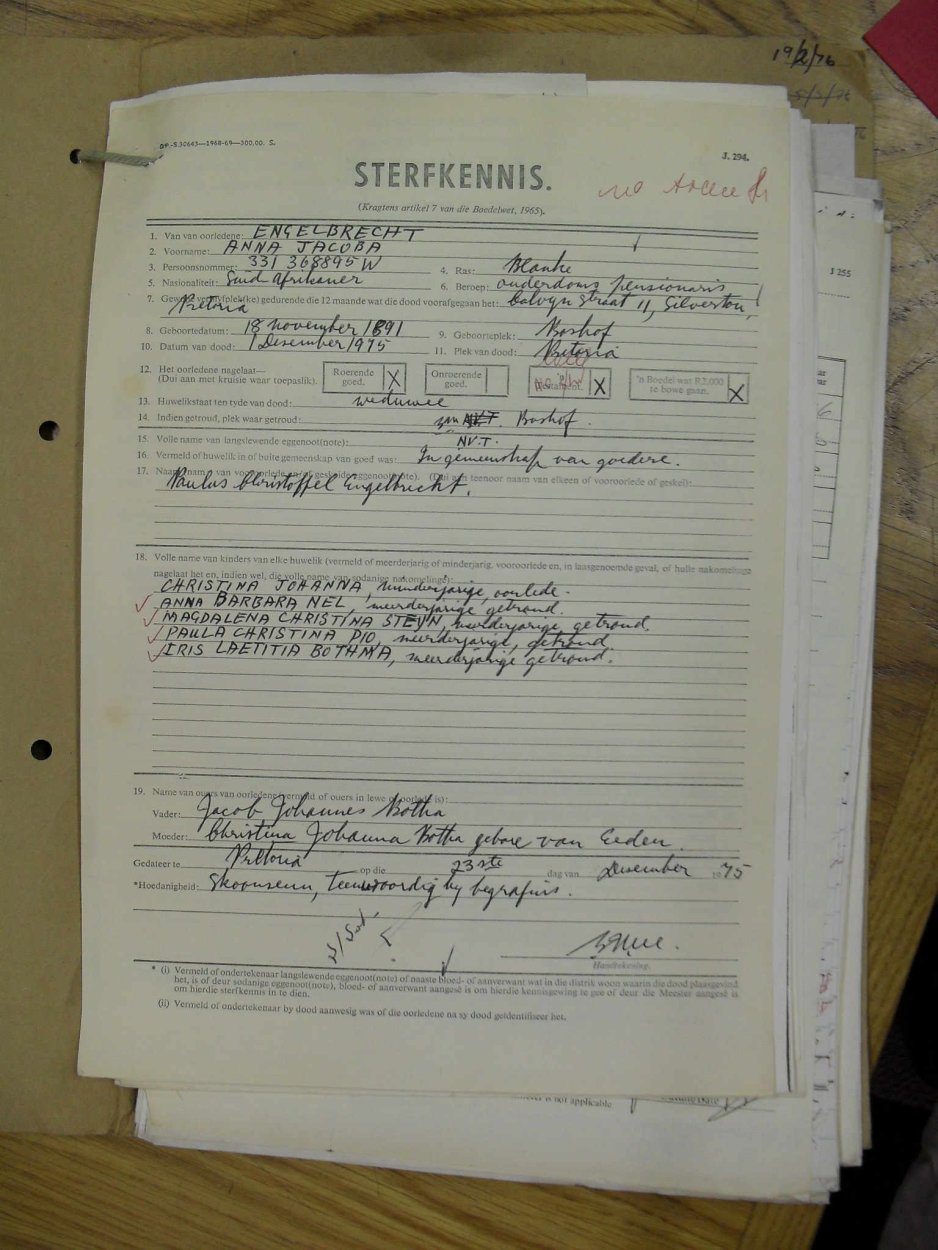 19/2/76
DP.-S.30643—1968-69—300,00. S.
J. 294.
STERFKENNIS.
(Kragtens artikel 7 van die Boedelwet, 1965).
J 255
1. Van van oorledene: ENGELBRECHT
2. Voorname: ANNA JACOBA
3. Persoonsnommer: 331 368895 W
4. Ras: Blanke
5. Nasionaliteit: Suid Afrikaner
6. Beroep: ouderdoms pensionaris
7. Gewone verblyfplek(ke) gedurende die 12 maande wat die dood voorafgegaan het: Calvyn Straat 11, Silverton,
Pretoria
8. Geboortedatum: 18 November 1891
9. Geboorteplek: Boshof
10. Datum van dood: 1 Desember 1975
11. Plek van dood: Pretoria
12. Het oorledene nagelaat—
(Dui aan met kruisie waar toepaslik).
Roerende goed. X
Onroerende goed.
Testament. X
'n Boedel wat R2,000 te bowe gaan. X
13. Huwelikstaat ten tyde van dood: weduwee
14. Indien getroud, plek waar getroud: Boshof.
15. Volle name van langslewende eggenoot(note): NV.T.
16. Vermeld of huwelik in of buite gemeenskap van goed was: In gemeenskap van goedere.
17. Naam/name van vooroorlede en/of geskeide eggenoot(note). (Dui aan teenoor naam van elkeen of vooroorlede of geskei):
Paulus Christoffel Engelbrecht.
18. Volle name van kinders van elke huwelik (vermeld of meerderjarig of minderjarig, vooroorlede en, in laasgenoemde geval, of hulle nakomelinge
nagelaat het en, indien wel, die volle name van sodanige nakomelinge):
CHRISTINA JOHANNA, minderjarige, oorlede.
ANNA BARBARA NEL, meerderjarige getroud.
MAGDALENA CHRISTINA STEYN, meerderjarige, getroud.
PAULA CHRISTINA PIO, meerderjarige, getroud.
IRIS LAETITIA BOTHMA, meerderjarige getroud.
19. Name van ouers van oorledene (vermeld of ouers in lewe of oorlede is):
Vader: Jacob Johannes Botha
Moeder: Christina Johanna Botha gebore van Eeden.
Gedateer te Pretoria op die 23ste dag van Desember 1975
*Hoedanigheid: Skoonseun, teenwoordig by begrafnis.
Handtekening.
* (i) Vermeld of ondertekenaar langslewende eggenoot(note) of naaste bloed- of aanverwant wat in die distrik woon waarin die dood plaasgevind
het, is of deur sodanige eggenoot(note), bloed- of aanverwant aangesê is om hierdie kennisgewing te gee of deur die Meester aangesê is
om hierdie sterfkennis in te dien.
(ii) Vermeld of ondertekenaar by dood aanwesig was of die oorledene na sy dood geïdentifiseer het.
is not applicable